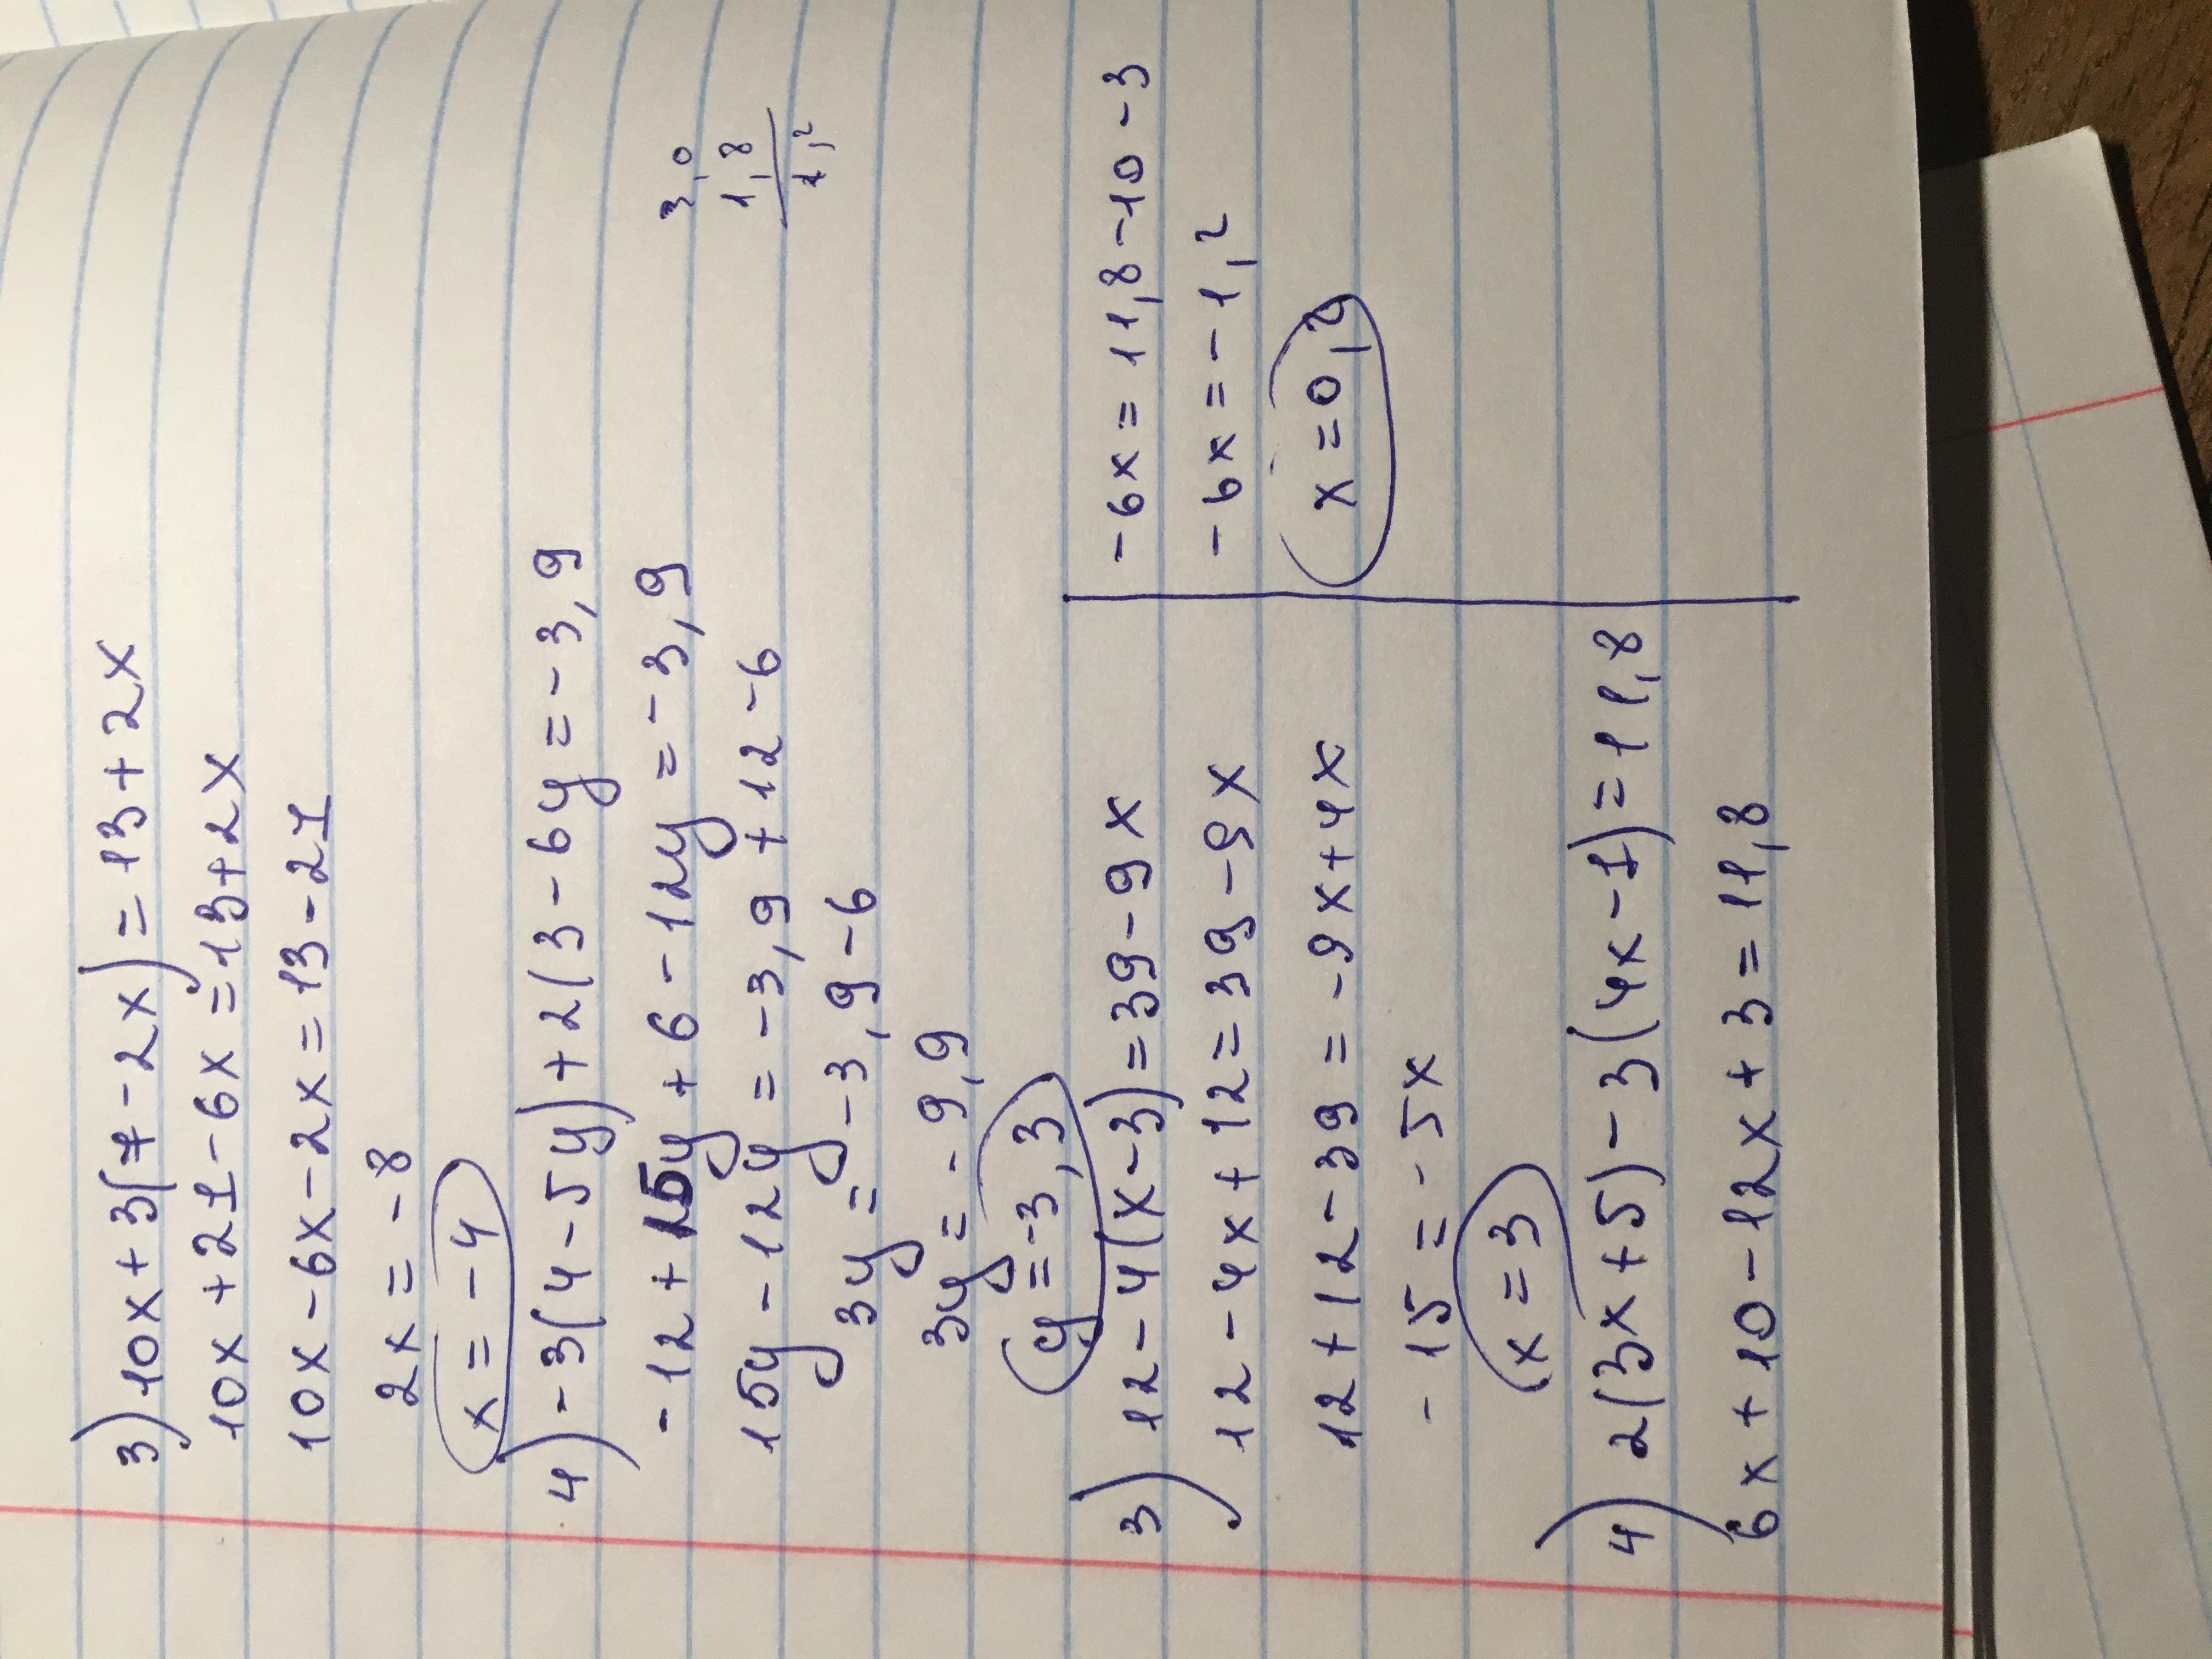 3) 10x + 3(7 - 2x) = 13 + 2x
10x + 21 - 6x = 13 + 2x
10x - 6x - 2x = 13 - 21
2x = -8
x = -4
4) -3(4 - 5y) + 2(3 - 6y = -3,9
-12 + 15y + 6 - 12y = -3,9
15y - 12y = -3,9 + 12 - 6
3y = -3,9 - 6
3y = -9,9
y = -3,3
3,0
1,8
1,2
3) 12 - 4(x - 3) = 39 - 9x
12 - 4x + 12 = 39 - 9x
12 + 12 - 39 = -9x + 4x
-15 = -5x
x = 3
4) 2(3x + 5) - 3(4x - 1) = 11,8
6x + 10 - 12x + 3 = 11,8
-6x = 11,8 - 10 - 3
-6x = -1,2
x = 0,2